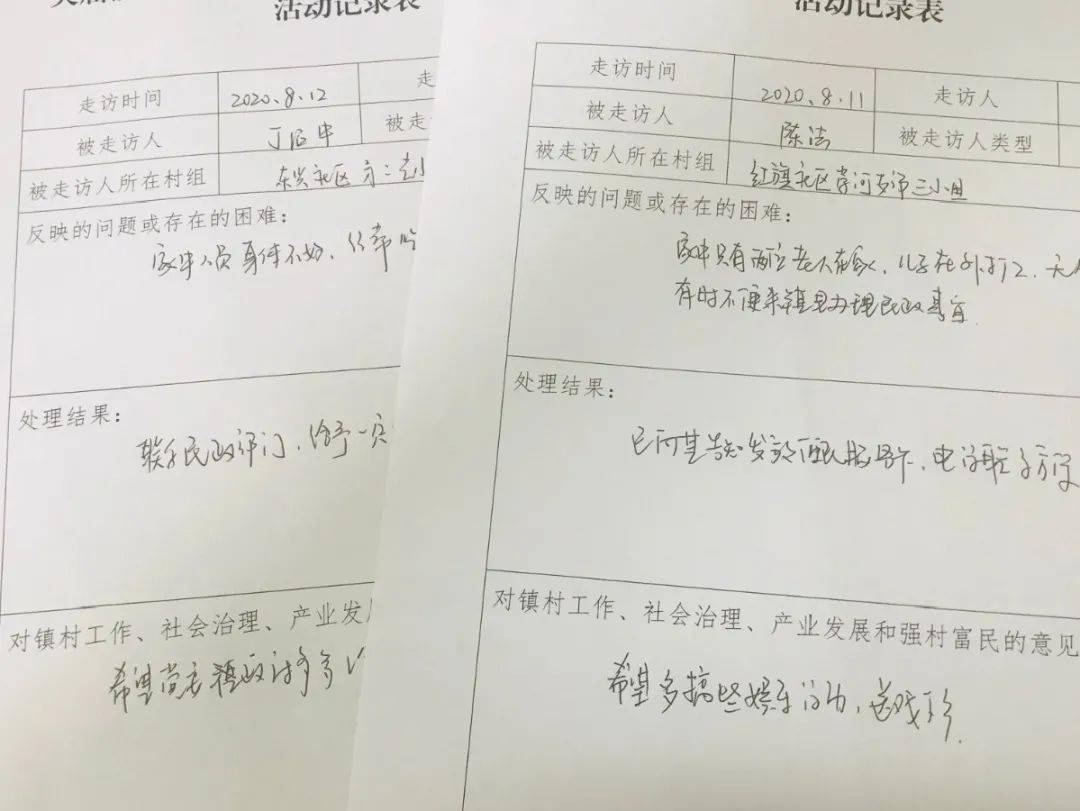 活动记录表
走访时间 2020.8.12 走
被走访人 丁 被走
被走访人所在村组 东兴社区
反映的问题或存在的困难：
家中人员身体不好，经常吃
处理结果：
联系民政部门，给予一定
对镇村工作、社会治理、产业发
希望党委镇政府多
活动记录表
走访时间 2020.8.11 走访人
被走访人 陈洁 被走访人类型
被走访人所在村组 红旗社区 三小组
反映的问题或存在的困难：
家中只有两位老人在家，儿子在外打工，无
有时不便来镇里办理民政事宜
处理结果：
已向其告知发放便民服务卡，电话联系方便
对镇村工作、社会治理、产业发展和强村富民的意见
希望多搞些娱乐活动，送戏下乡.